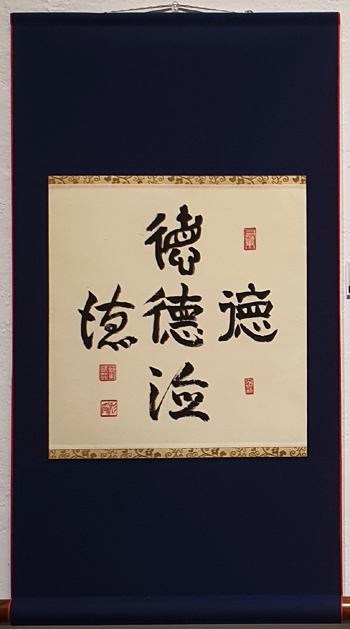 德
德德德
德